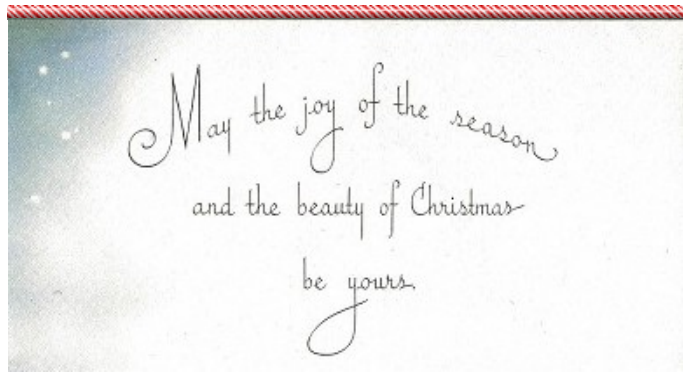 May the joy of the season
and the beauty of Christmas
be yours.